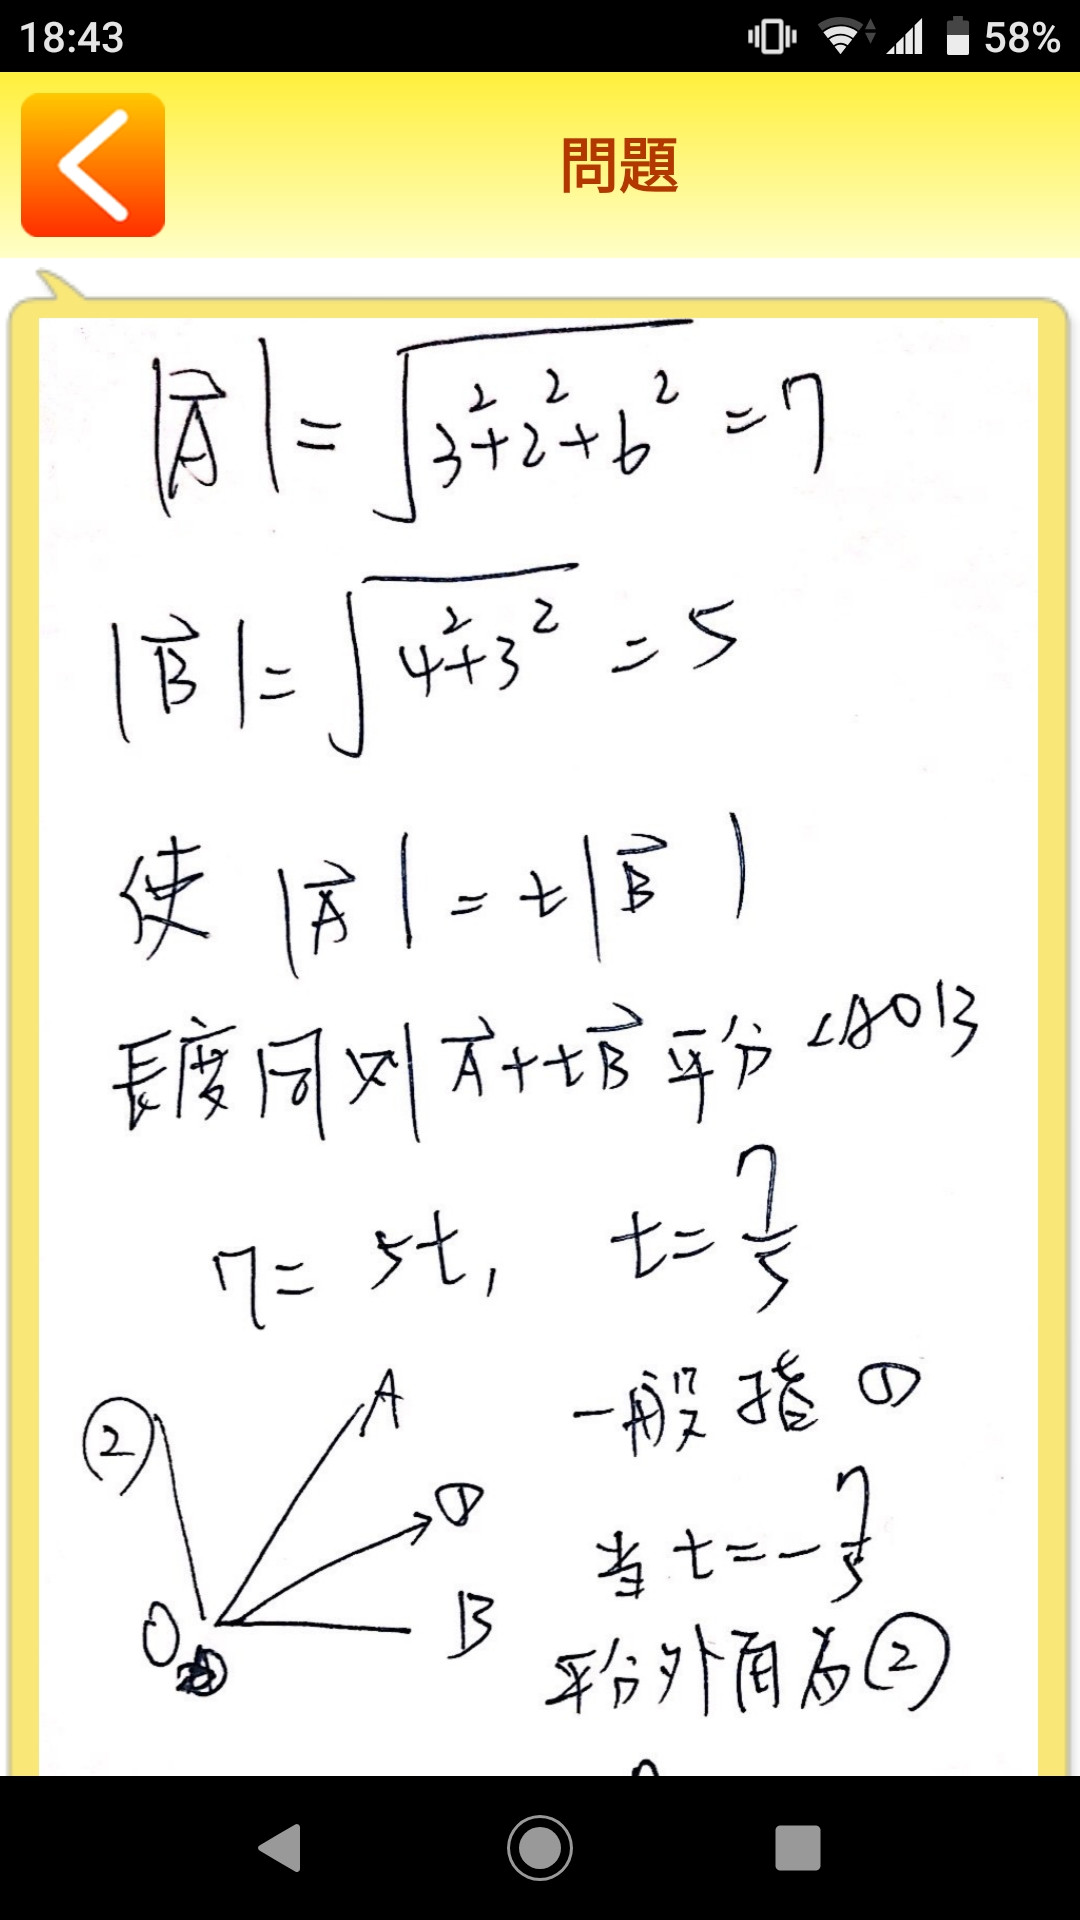 18:43
58%
問題
|A⃗| = √(3²+2²+6²) = 7
|B⃗| = √(4²+3²) = 5
使 |A⃗| = t|B⃗|
長度同則 A⃗+tB⃗ 平分 ∠AOB
7 = 5t, t = 7/5
一般指 ①
当 t = -7/5
平分外角為 ②
②
A
①
O
B